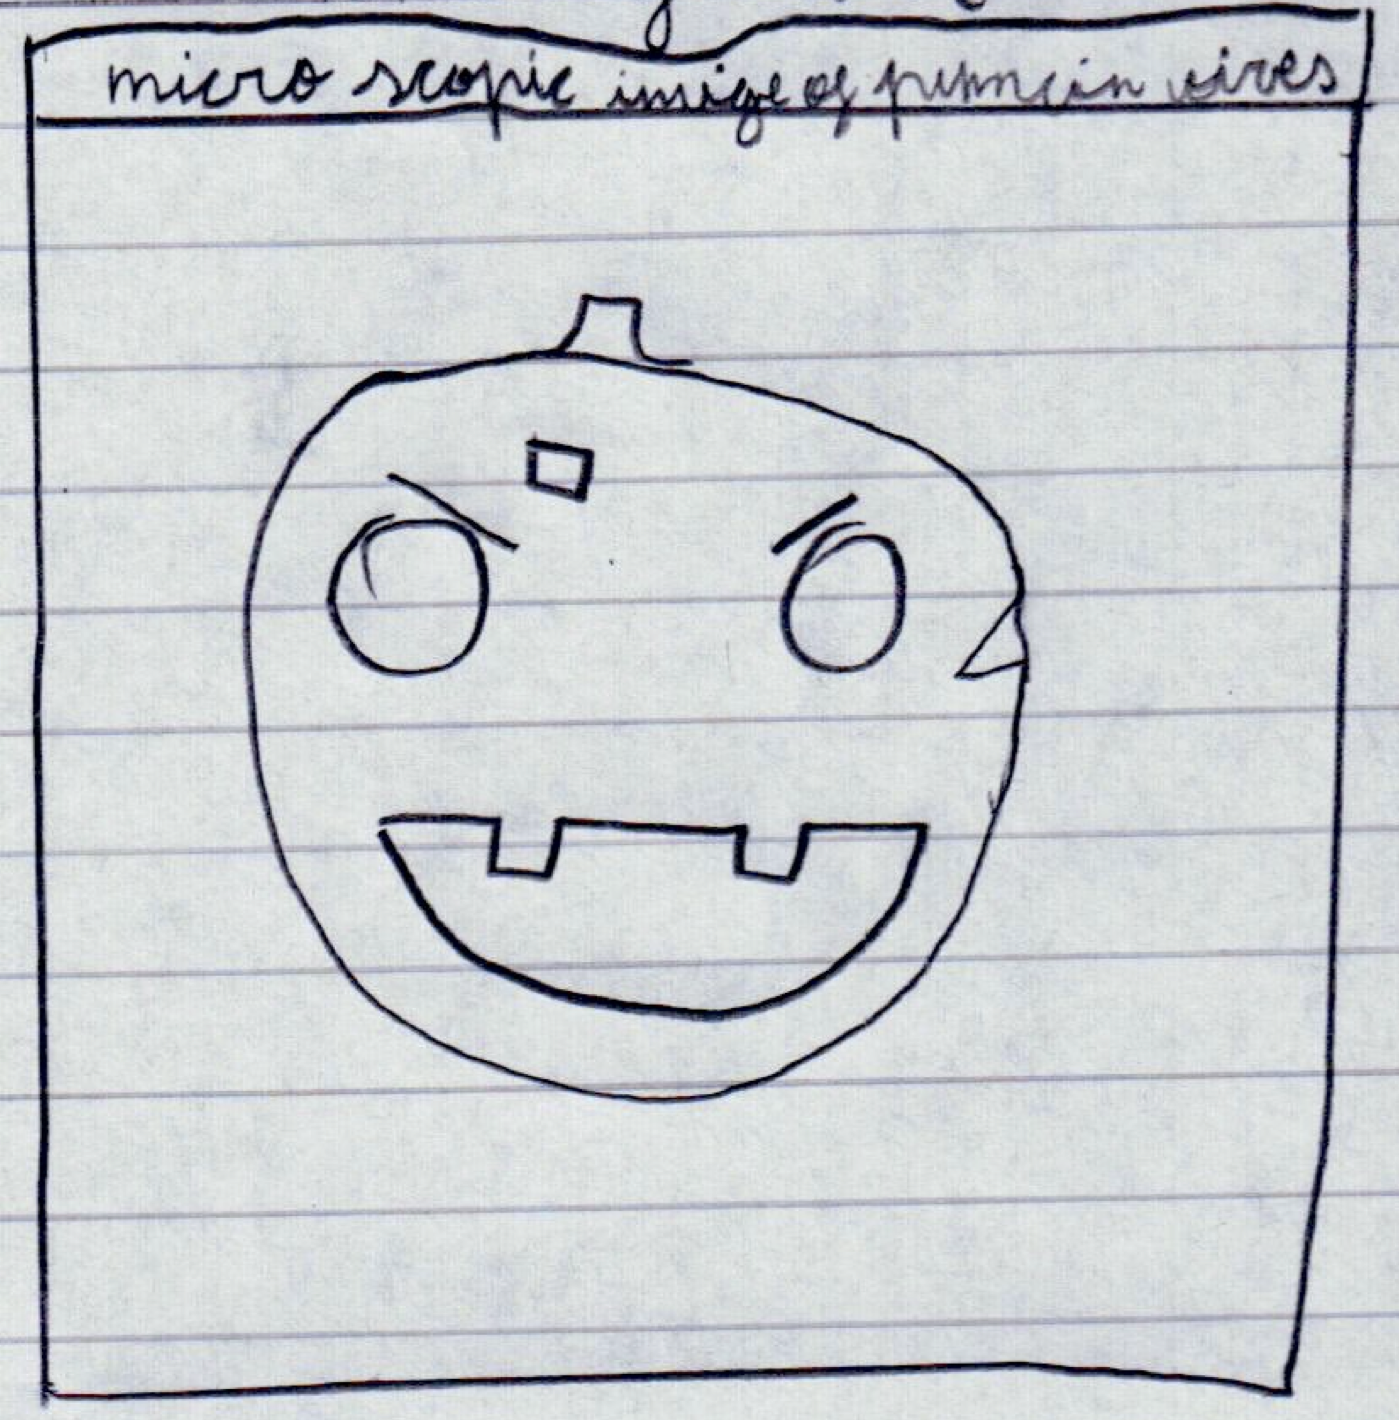 micro scopic imige of pumncin vires